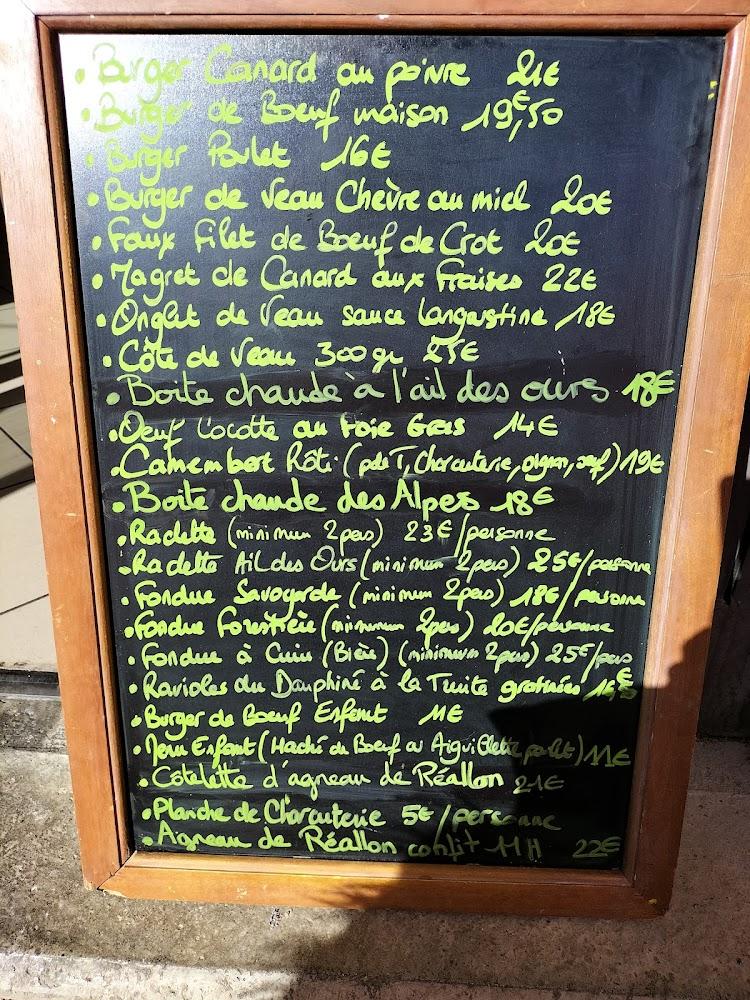 • Burger Canard au poivre 21€
• Burger de Boeuf maison 19€,50
• Burger Poulet 16€
• Burger de Veau Chèvre au miel 20€
• Faux Filet de Boeuf de Crot 20€
• Magret de Canard aux Fraises 22€
• Onglet de Veau sauce Langoustine 18€
• Côte de Veau 300 gr 25€
• Boite chaude à l'ail des ours 18€
• Oeuf Cocotte au Foie Gras 14€
• Camembert Rôti (pdeT, Charcuterie, oignon, oeuf) 19€
• Boite chaude des Alpes 18€
• Raclette (minimum 2pers) 23€/personne
• Raclette Ail des Ours (minimum 2pers) 25€/personne
• Fondue Savoyarde (minimum 2pers) 18€/personne
• Fondue Forestière (minimum 2pers) 20€/personne
• Fondue à Cuin (Bière) (minimum 2pers) 25€/pers
• Ravioles du Dauphiné à la Truite gratinées
• Burger de Boeuf Enfant 11€
• Menu Enfant (Haché de Boeuf ou Aiguillette poulet) 11€
• Côtelette d'agneau de Réallon 21€
• Planche de Charcuterie 5€/personne
• Agneau de Réallon confit 11H 22€